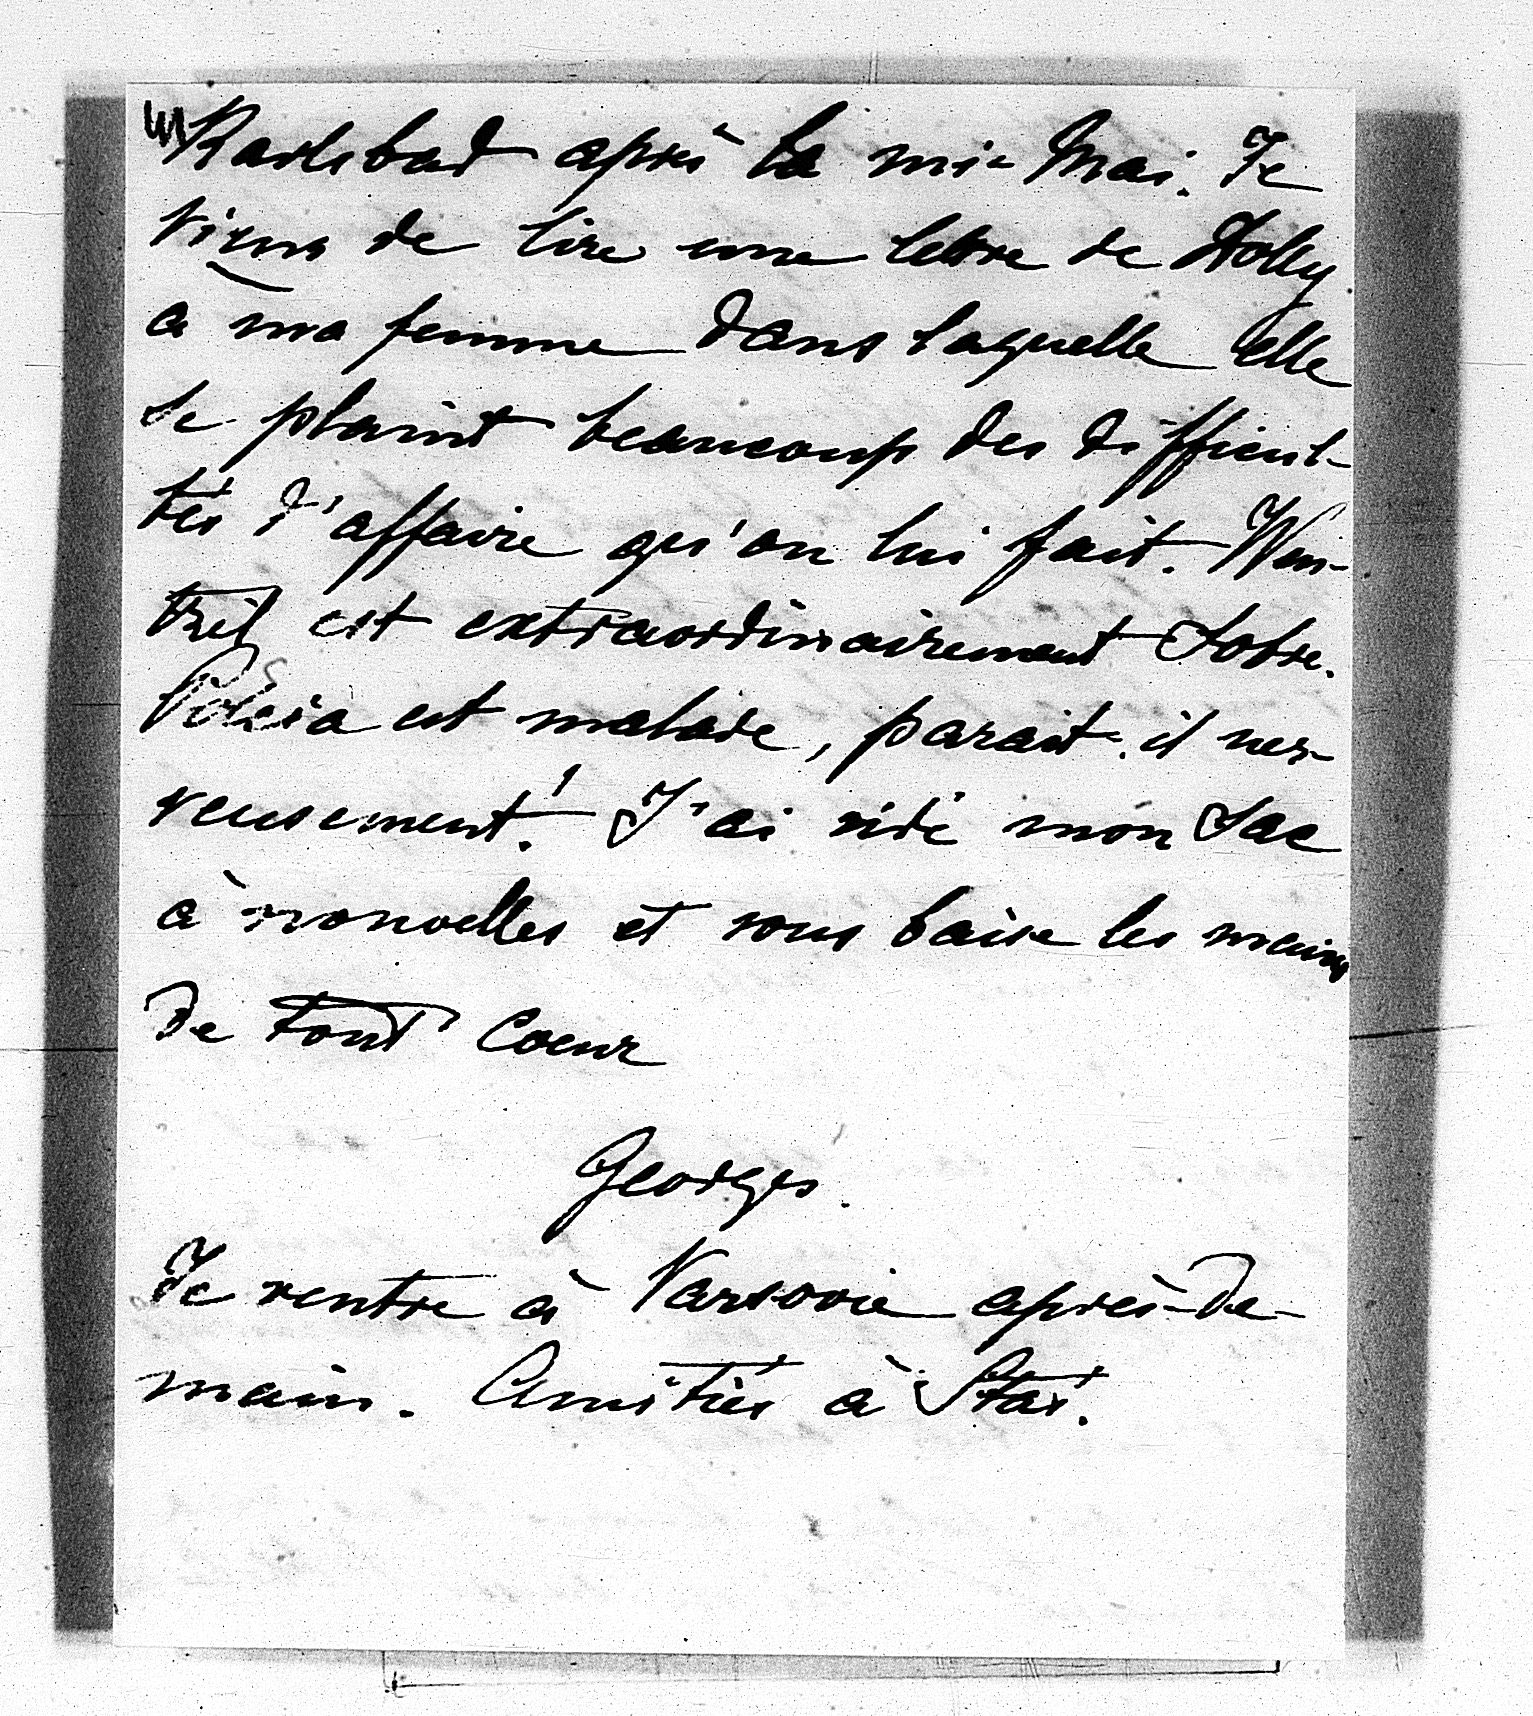 Karlsbad après la mi-Mai. Je
viens de lire une lettre de Dolly
à ma femme dans laquelle elle
se plaint beaucoup des difficul-
tés d'affaire qu'on lui fait.
est extraordinairement sobre.
est malade, parait-il ner-
veusement! J'ai vidé mon sac
à nouvelles et vous baise les mains
de tout coeur
Georges.
Je rentre à Varsovie après-de-
main. Amitiés à Stas.